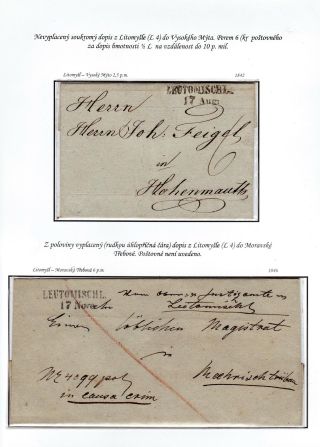 Nevyplacený soukromý dopis z Litomyšle (L 4) do Vysokého Mýta. Perem 6 (kr poštovného
za dopis hmotnosti ½ L na vzdálenost do 10 p. mil.
Litomyšl – Vysoký Mýto 2,5 p.m. 1842
LEUTOMISCHL.
17 Aug:
Herrn
Herrn Joh: Feigl
in
Hohenmauth
6
Z poloviny vyplacený (rudkou úhlopříčná čára) dopis z Litomyšle (L 4) do Moravské
Třebové. Poštovné není uvedeno.
Litomyšl – Moravská Třebová 6 p.m. 1846
LEUTOMISCHL.
17 Novemb:
Leitomischl
Einem löblichen Magistrat
in causa crim
Maehrisch trübau